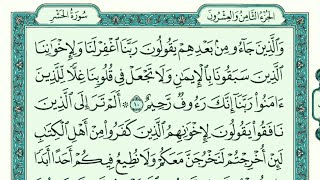 سُورَةُ الحَشْرِ الجُزْءُ الثَّامِنُ وَالعِشْرُونَ
وَٱلَّذِينَ جَآءُو مِنۢ بَعْدِهِمْ يَقُولُونَ رَبَّنَا ٱغْفِرْ لَنَا وَلِإِخْوَٰنِنَا
ٱلَّذِينَ سَبَقُونَا بِٱلْإِيمَٰنِ وَلَا تَجْعَلْ فِى قُلُوبِنَا غِلًّا لِّلَّذِينَ
ءَامَنُوا۟ رَبَّنَآ إِنَّكَ رَءُوفٌ رَّحِيمٌ ١٠ أَلَمْ تَرَ إِلَى ٱلَّذِينَ
نَافَقُوا۟ يَقُولُونَ لِإِخْوَٰنِهِمُ ٱلَّذِينَ كَفَرُوا۟ مِنْ أَهْلِ ٱلْكِتَٰبِ
لَئِنْ أُخْرِجْتُمْ لَنَخْرُجَنَّ مَعَكُمْ وَلَا نُطِيعُ فِيكُمْ أَحَدًا أَبَدًا